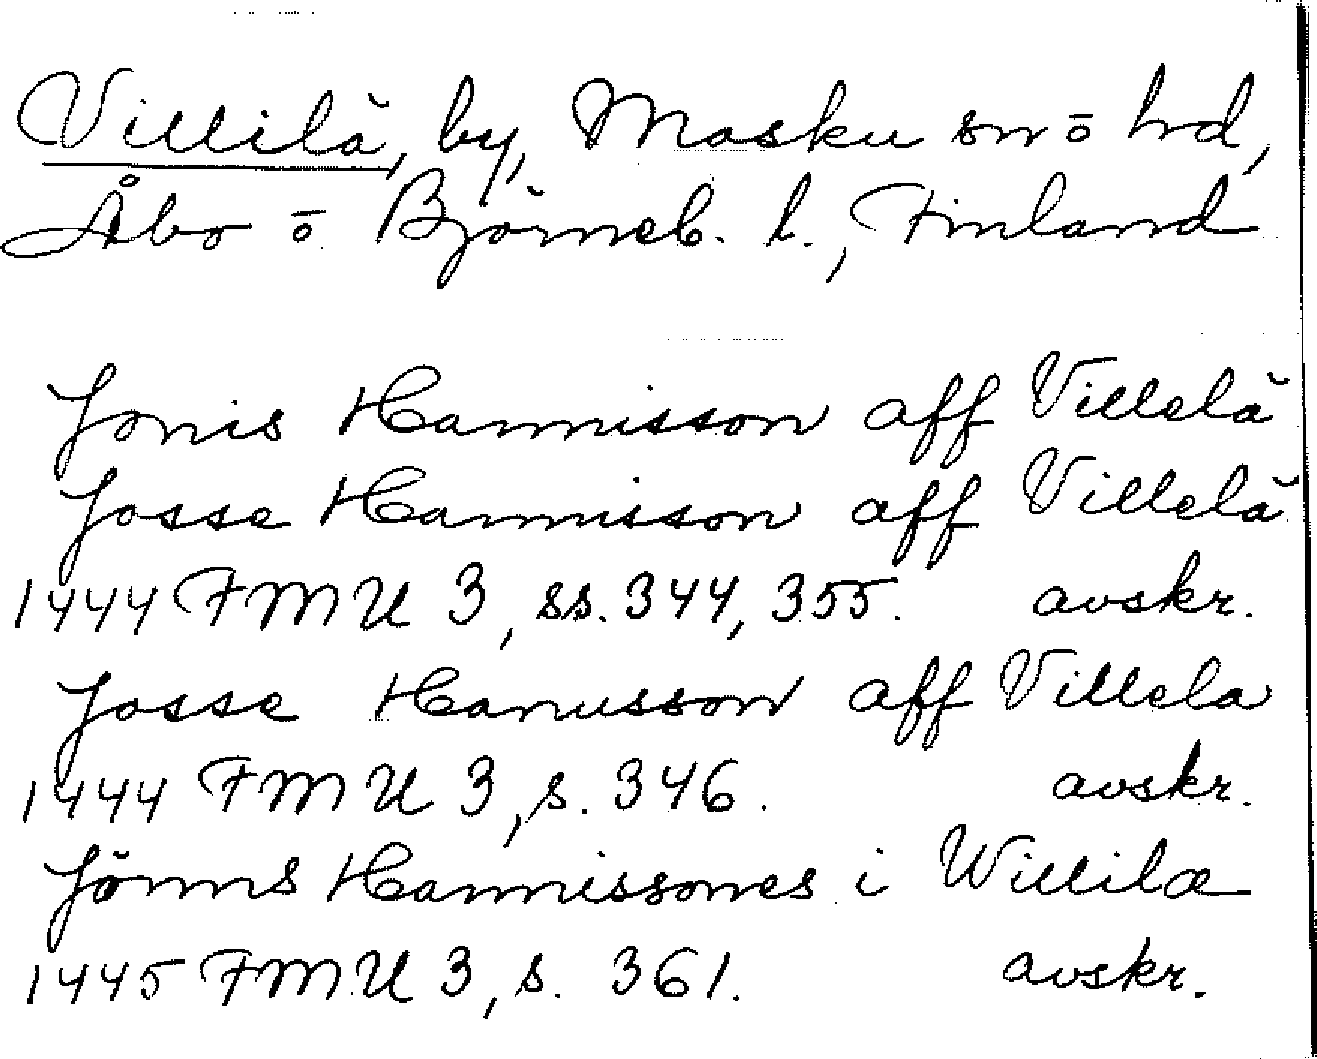 Villilä, by, Masku sn ō hd,
Åbo ō Björneb. l., Finland
Jonis Hannisson aff Villelä
Josse Hannisson aff Villelä
1444 FMU 3, ss. 344, 355. avskr.
Josse Hanusson aff Villela
1444 FMU 3, s. 346. avskr.
Jönns Hannissones i Willilæ
1445 FMU 3, s. 361. avskr.